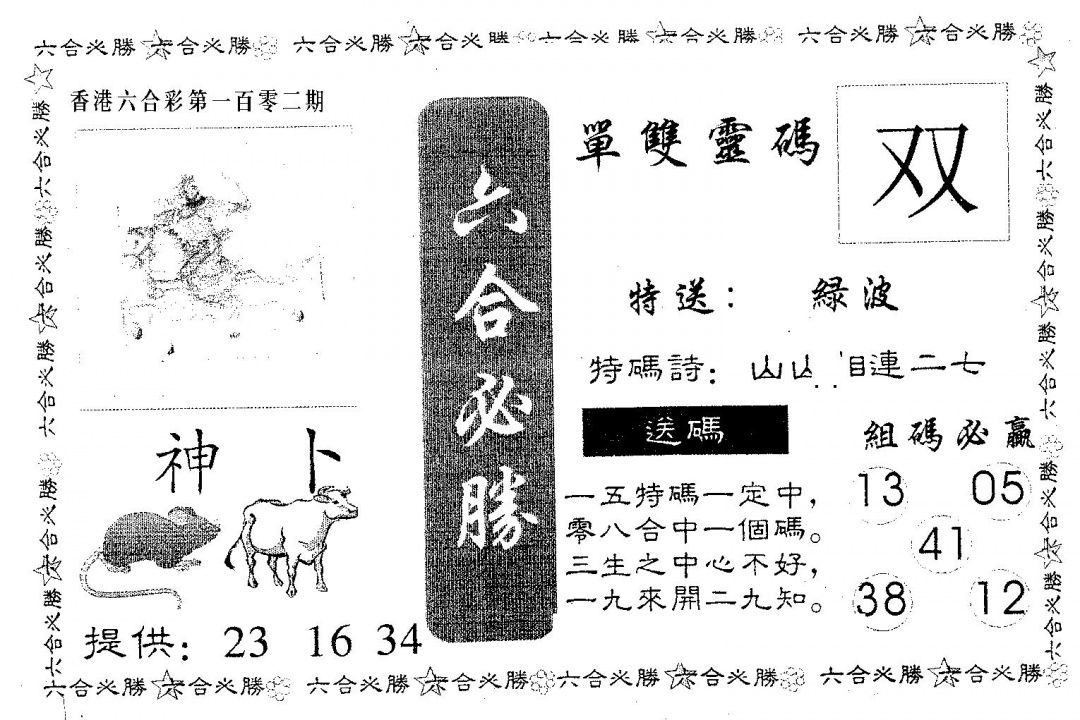 六合必勝 六合必勝 六合必勝 六合必勝 六合必勝 六合必勝 六合必勝 六合必勝
香港六合彩第一百零二期
六合必勝
單雙靈碼
双
特送： 綠波
特碼詩：山山 相連二七
送碼
一五特碼一定中，
零八合中一個碼。
三生之中心不好，
一九來開二九知。
組碼必贏
13 05
41
38 12
神 卜
提供：23 16 34
六合必勝 六合必勝 六合必勝 六合必勝 六合必勝 六合必勝 六合必勝 六合必勝
六合必勝 六合必勝 六合必勝 六合必勝
六合必勝 六合必勝 六合必勝 六合必勝